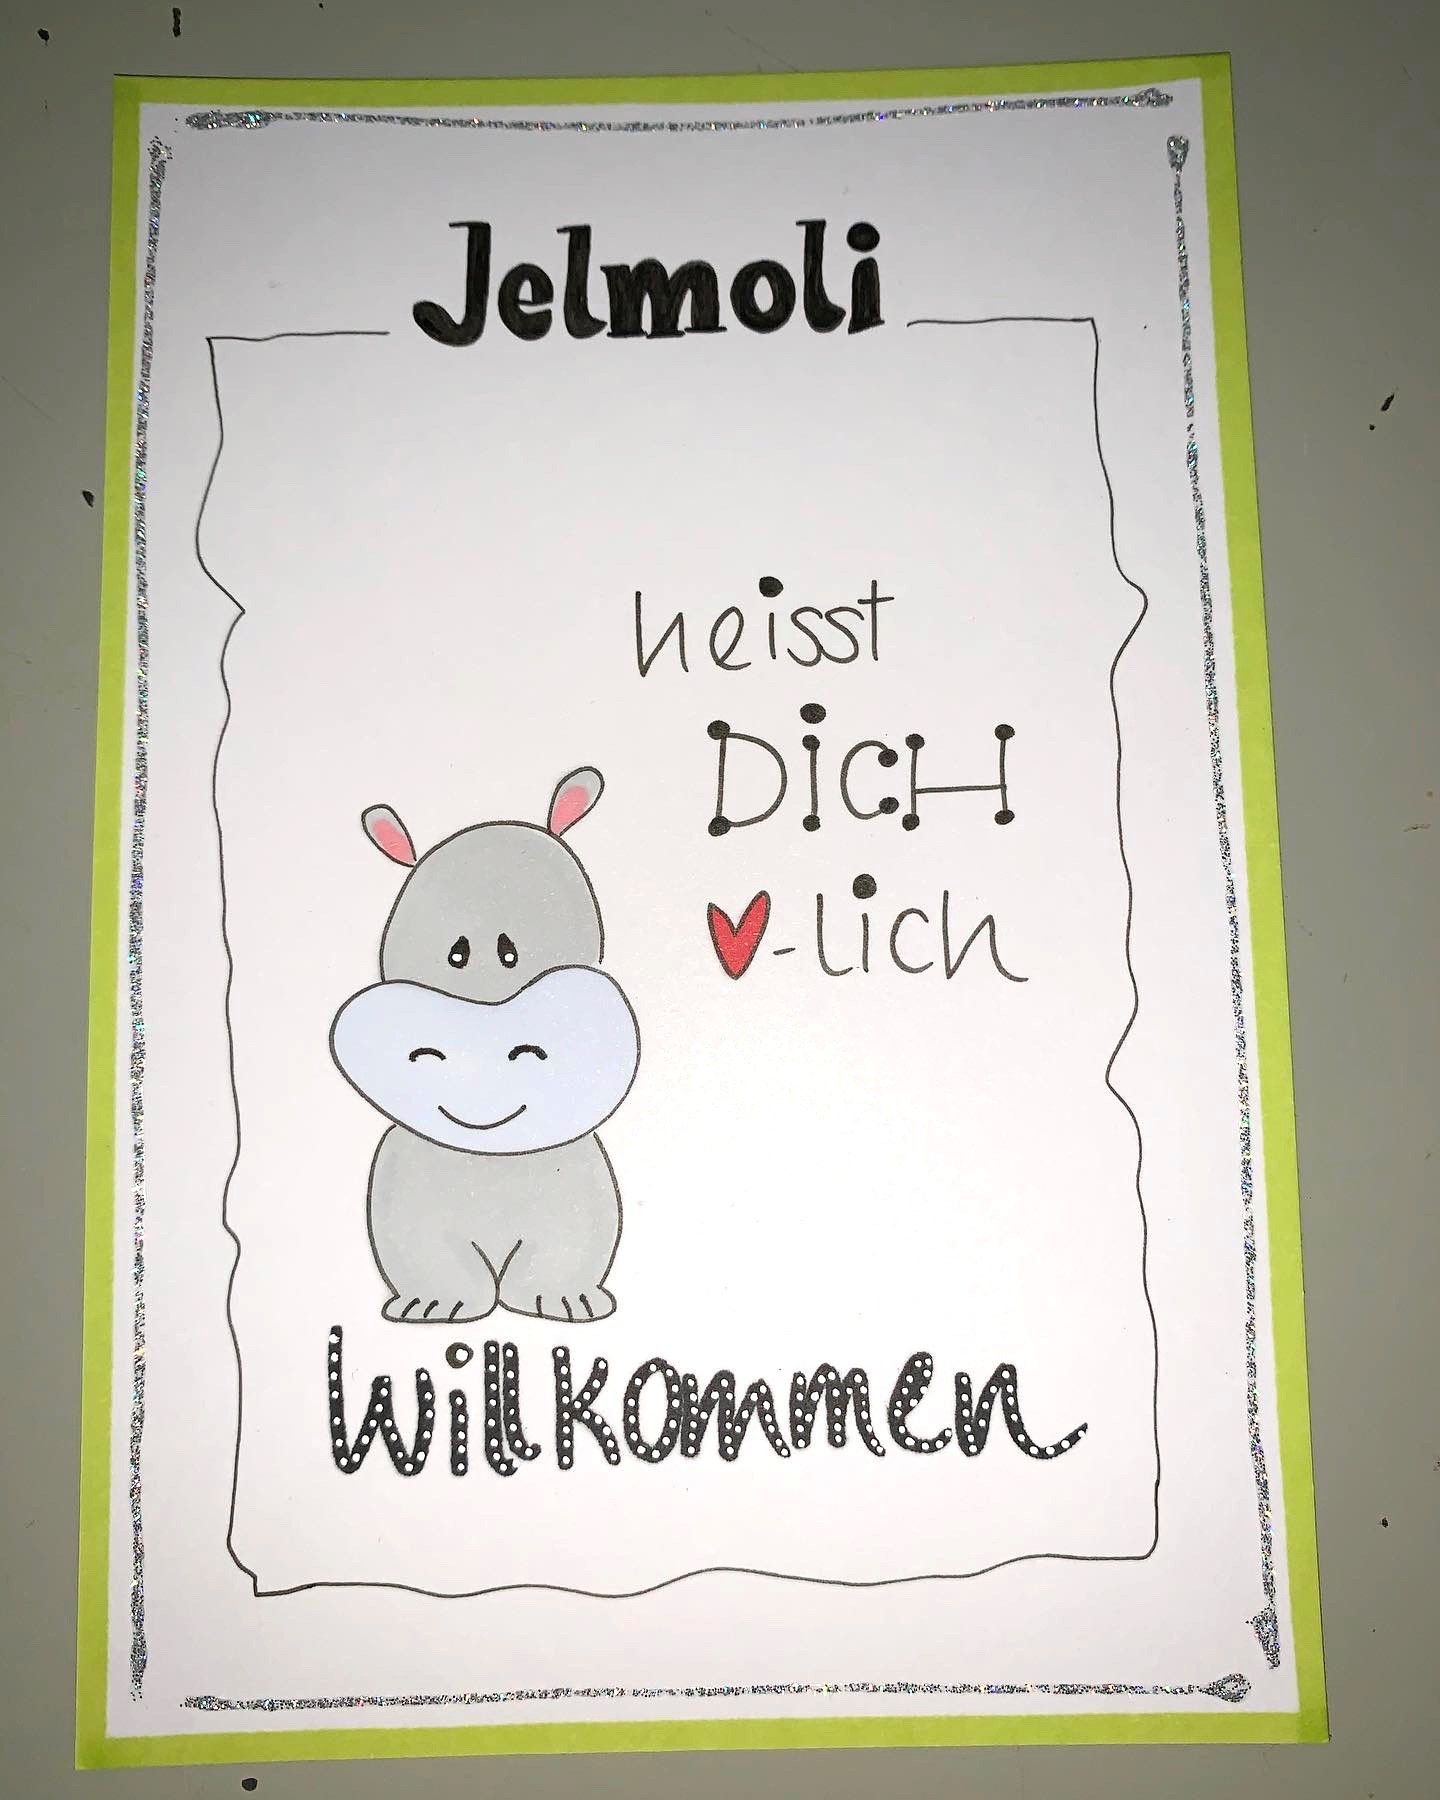 Jelmoli
heisst
DiCH
♥-lich
Willkommen